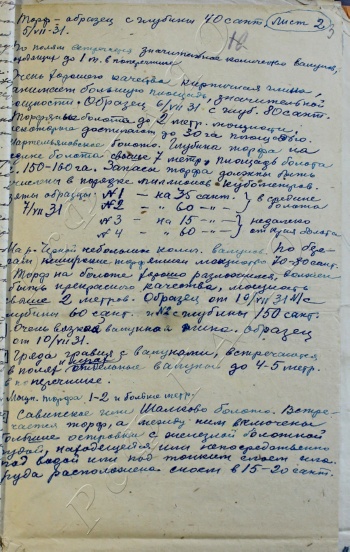 Торф - образец с глубины 40 сант. лист 23
5/VII-31.
По полям встречается значительное количество валунов,
до 1 м. в поперечнике
Очень хорошего качества кирпичная глина,
занимает большую площадь, значительной
мощности. Образец 6/VII 31 с глуб. 80 сант.
Торфяные болота до 2 метр. мощности,
некоторые достигают до 30 га площадью.
болото. Глубина торфа на
болота свыше 7 метр. площадь болота
150-160 га. Запасы торфа должны быть
в порядке миллионов кубометров.
образцы: №1 - на 35 сант. } в средине
7/VII 31 №2 - " 60 - " } болота
№3 - на 15 - " } недалеко
№4 - " 60 - " } от края болота
небольшое колич. валунов. По
торфяники мощность 70-80 сант.
Торф на болоте хорошо разложился, должен
быть прекрасного качества, мощность
свыше 2 метров. Образец от 10/VII 31 №1 с
глубины 60 сант. и №2 с глубины 150 сант.
Очень вязкая валунная глина. Образец
от 10/VII 31.
Гряда гравия с валунами, встречаются
в полях отдельные валуны до 4-5 метр.
в поперечнике.
Мощн. торфа 1-2 и более метр.
Савинское или болото. Встре-
чается торф, а между ним включены
большие островки с железной болотной
рудой, находящейся или непосредственно
под водой или под тонким слоем ила.
руда расположена слоем в 15-20 сант.